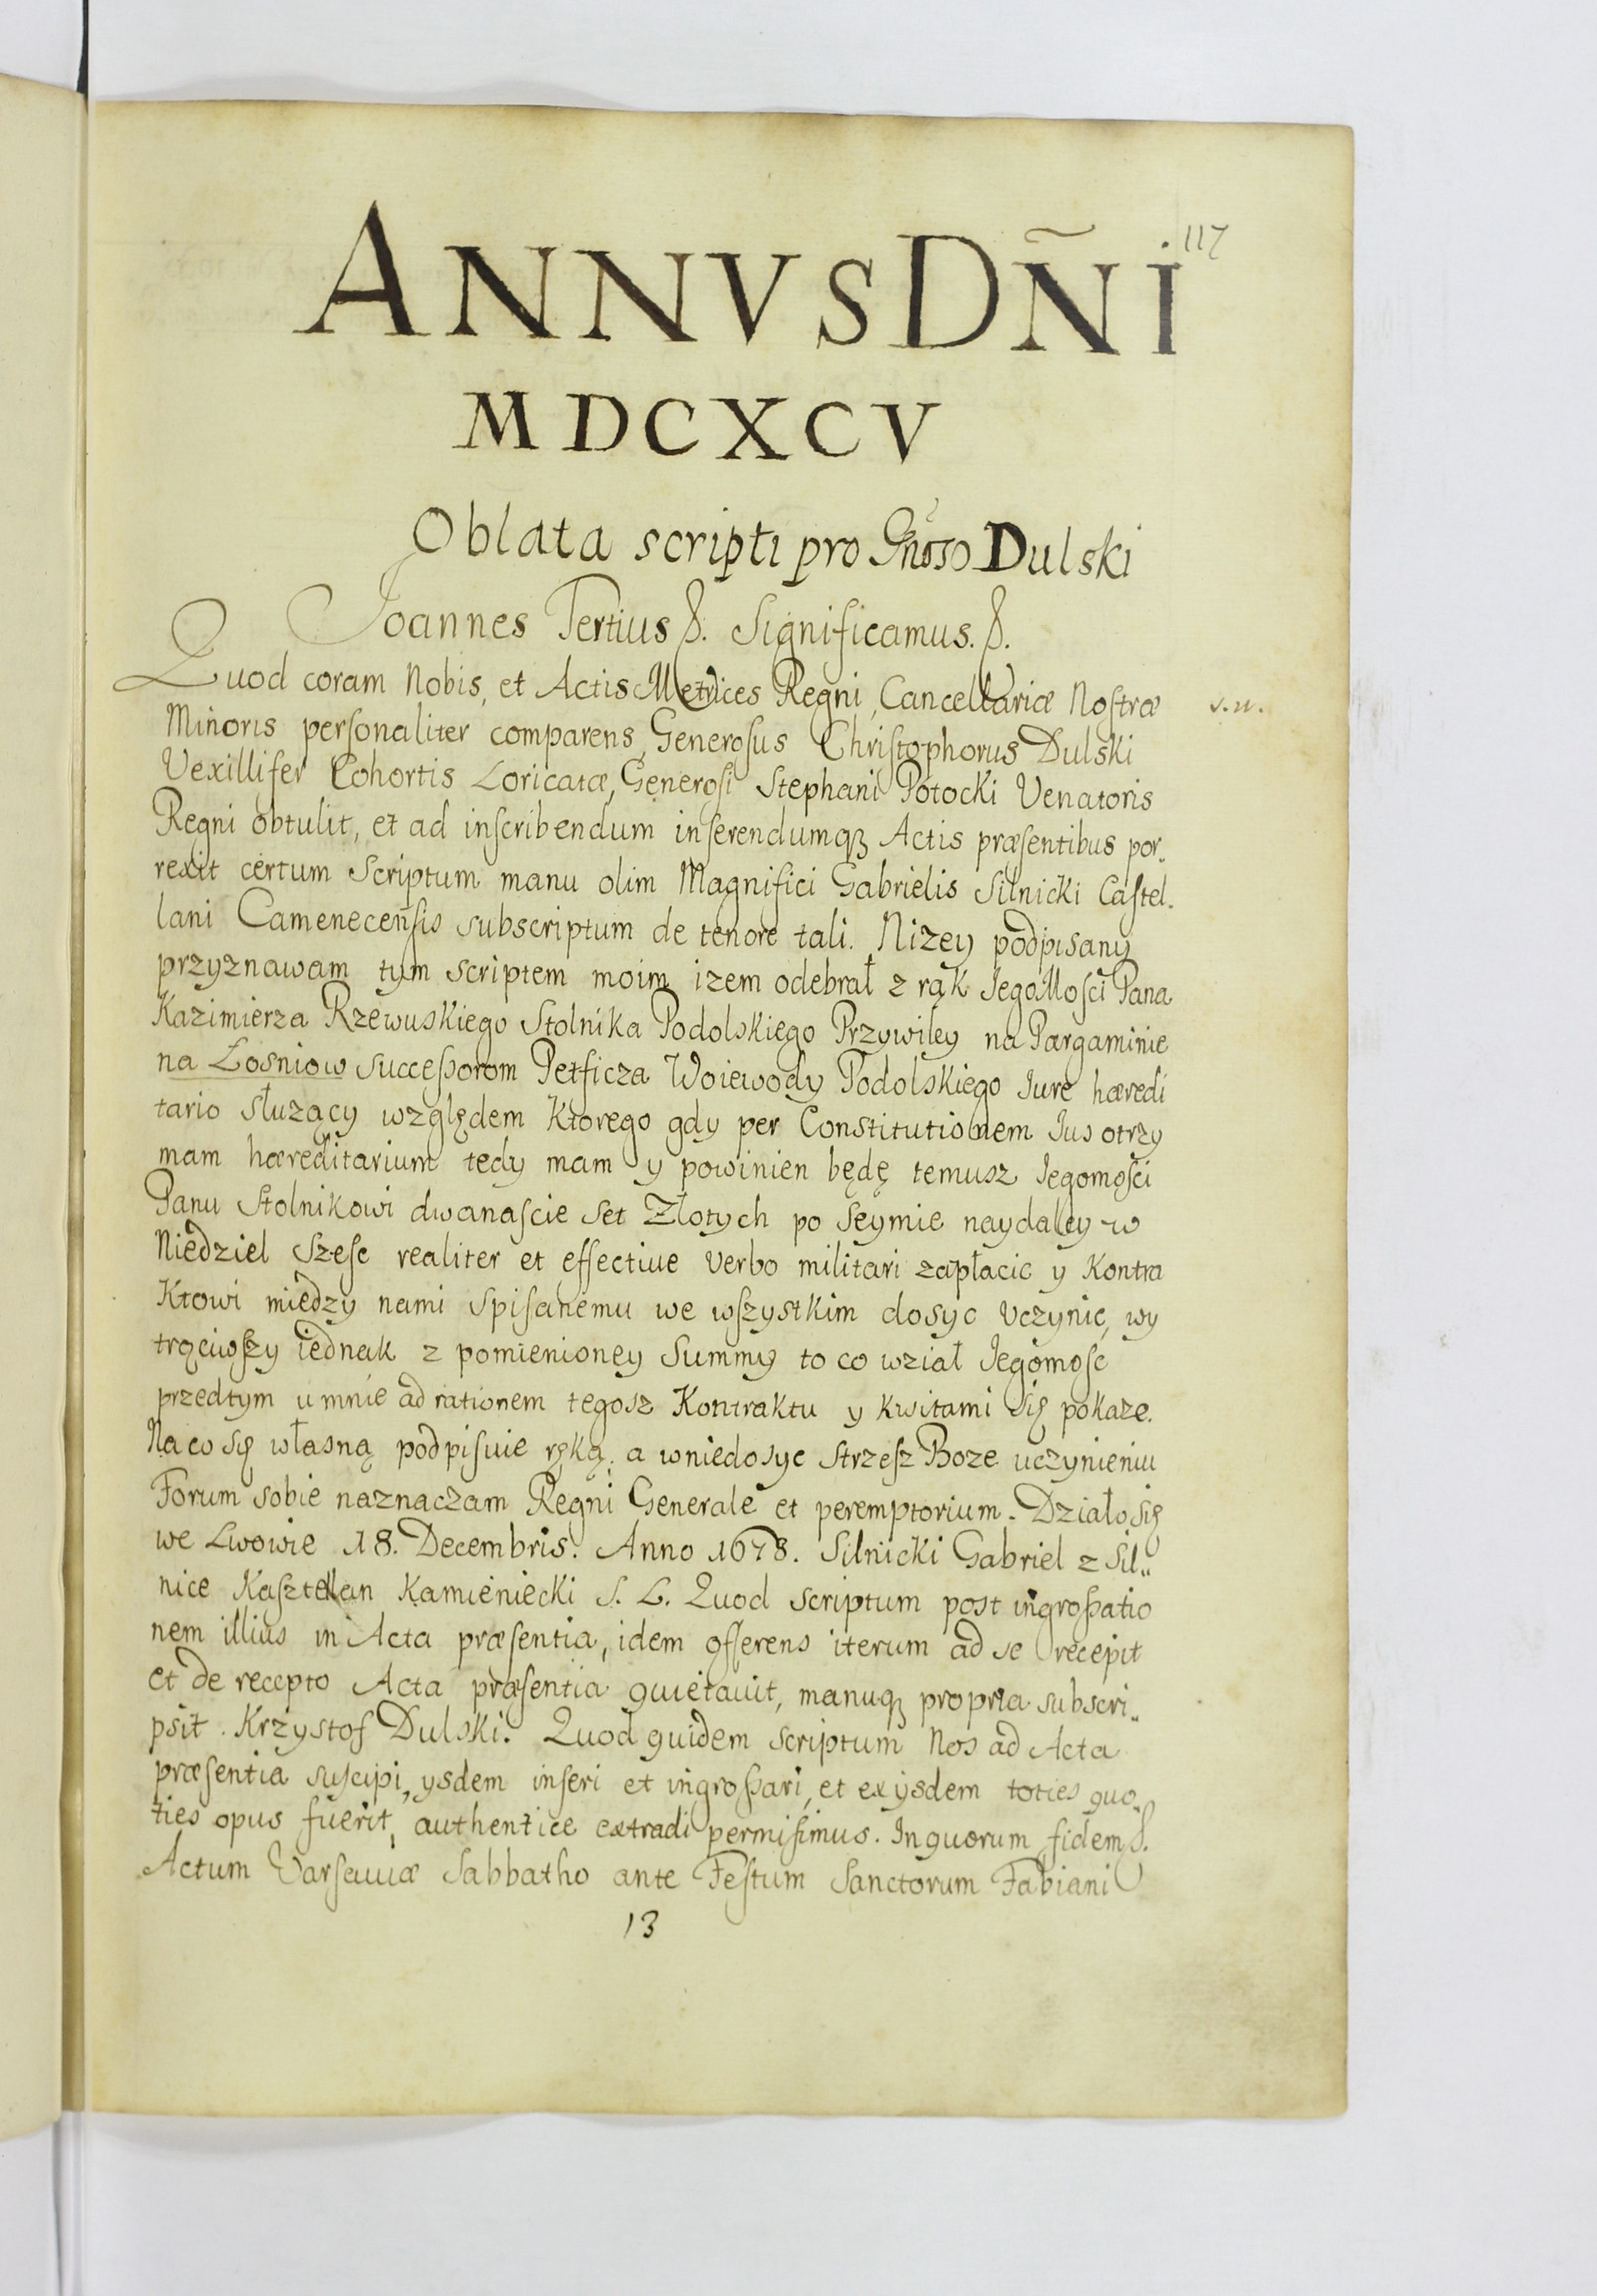 117
ANNVS DÑI
MDCXCV
Oblata scripti pro Gñoso Dulski
Joannes Tertius &. Significamus. &.
Quod coram Nobis, et Actis Metrices Regni, Cancellariæ Noſtræ
Minoris perſonaliter comparens, Generoſus Chriſtophorus Dulski
Vexillifer Cohortis Loricatæ, Generoſi Stephani Potocki Venatoris
Regni obtulit, et ad inſcribendum inſerendumqꝫ Actis præſentibus por-
rexit certum Scriptum manu olim Magnifici Gabrielis Silnicki Caſtel-
lani Camenecenſis subscriptum de tenore tali. Nizey podpisany
przyznawam tym scriptem moim izem odebrał z rąk JegoMoſci Pana
Kazimierza Rzewuskiego Stolnika Podolskiego Przywiley na Pargaminie
na Łosniow Succeßorom Petficza Woiewody Podolskiego Jure hæredi
tario służący względem Ktorego gdy per Constitutionem Jus otrzy
mam hæreditarium tedy mam y powinien będę temusz Jegomoſci
Panu Stolnikowi dwanaſcie Set Złotych po Seymie naydaley w
Niedziel Szeſc realiter et effectiue verbo militari zapłacic y Kontra
Ktowi między nami Spiſanemu we wſzystkim dosyc Vczynic, wy
trąciwſzy iednak z pomienioney Summy to co wział Jegomoſc
przedtym u mnie ad rationem tegosz Kontraktu y kwitami Się pokaze.
Na co Się własną podpiſuie ręką. a wniedosyc Strzeſz Boze uczynieniu
Forum sobie naznaczam Regni Generale et peremptorium. Działo Się
we Lwowie 18. Decembris. Anno 1678. Silnicki Gabriel z Sil-
nice Kasztellan Kamieniecki S. L. Quod scriptum post ingroßatio
nem illius in Acta præſentia, idem offerens iterum ad se recepit
et de recepto Acta præſentia quietauit, manuqꝫ propria subscri-
psit. Krzystof Dulski. Quod quidem scriptum Nos ad Acta
præſentia suſcipi, ysdem inſeri et ingroßari, et ex ysdem toties quo-
ties opus fuerit, authentice extradi permiſimus. In quorum fidem &.
Actum Varsauiæ Sabbatho ante Feſtum Sanctorum Fabiani
13